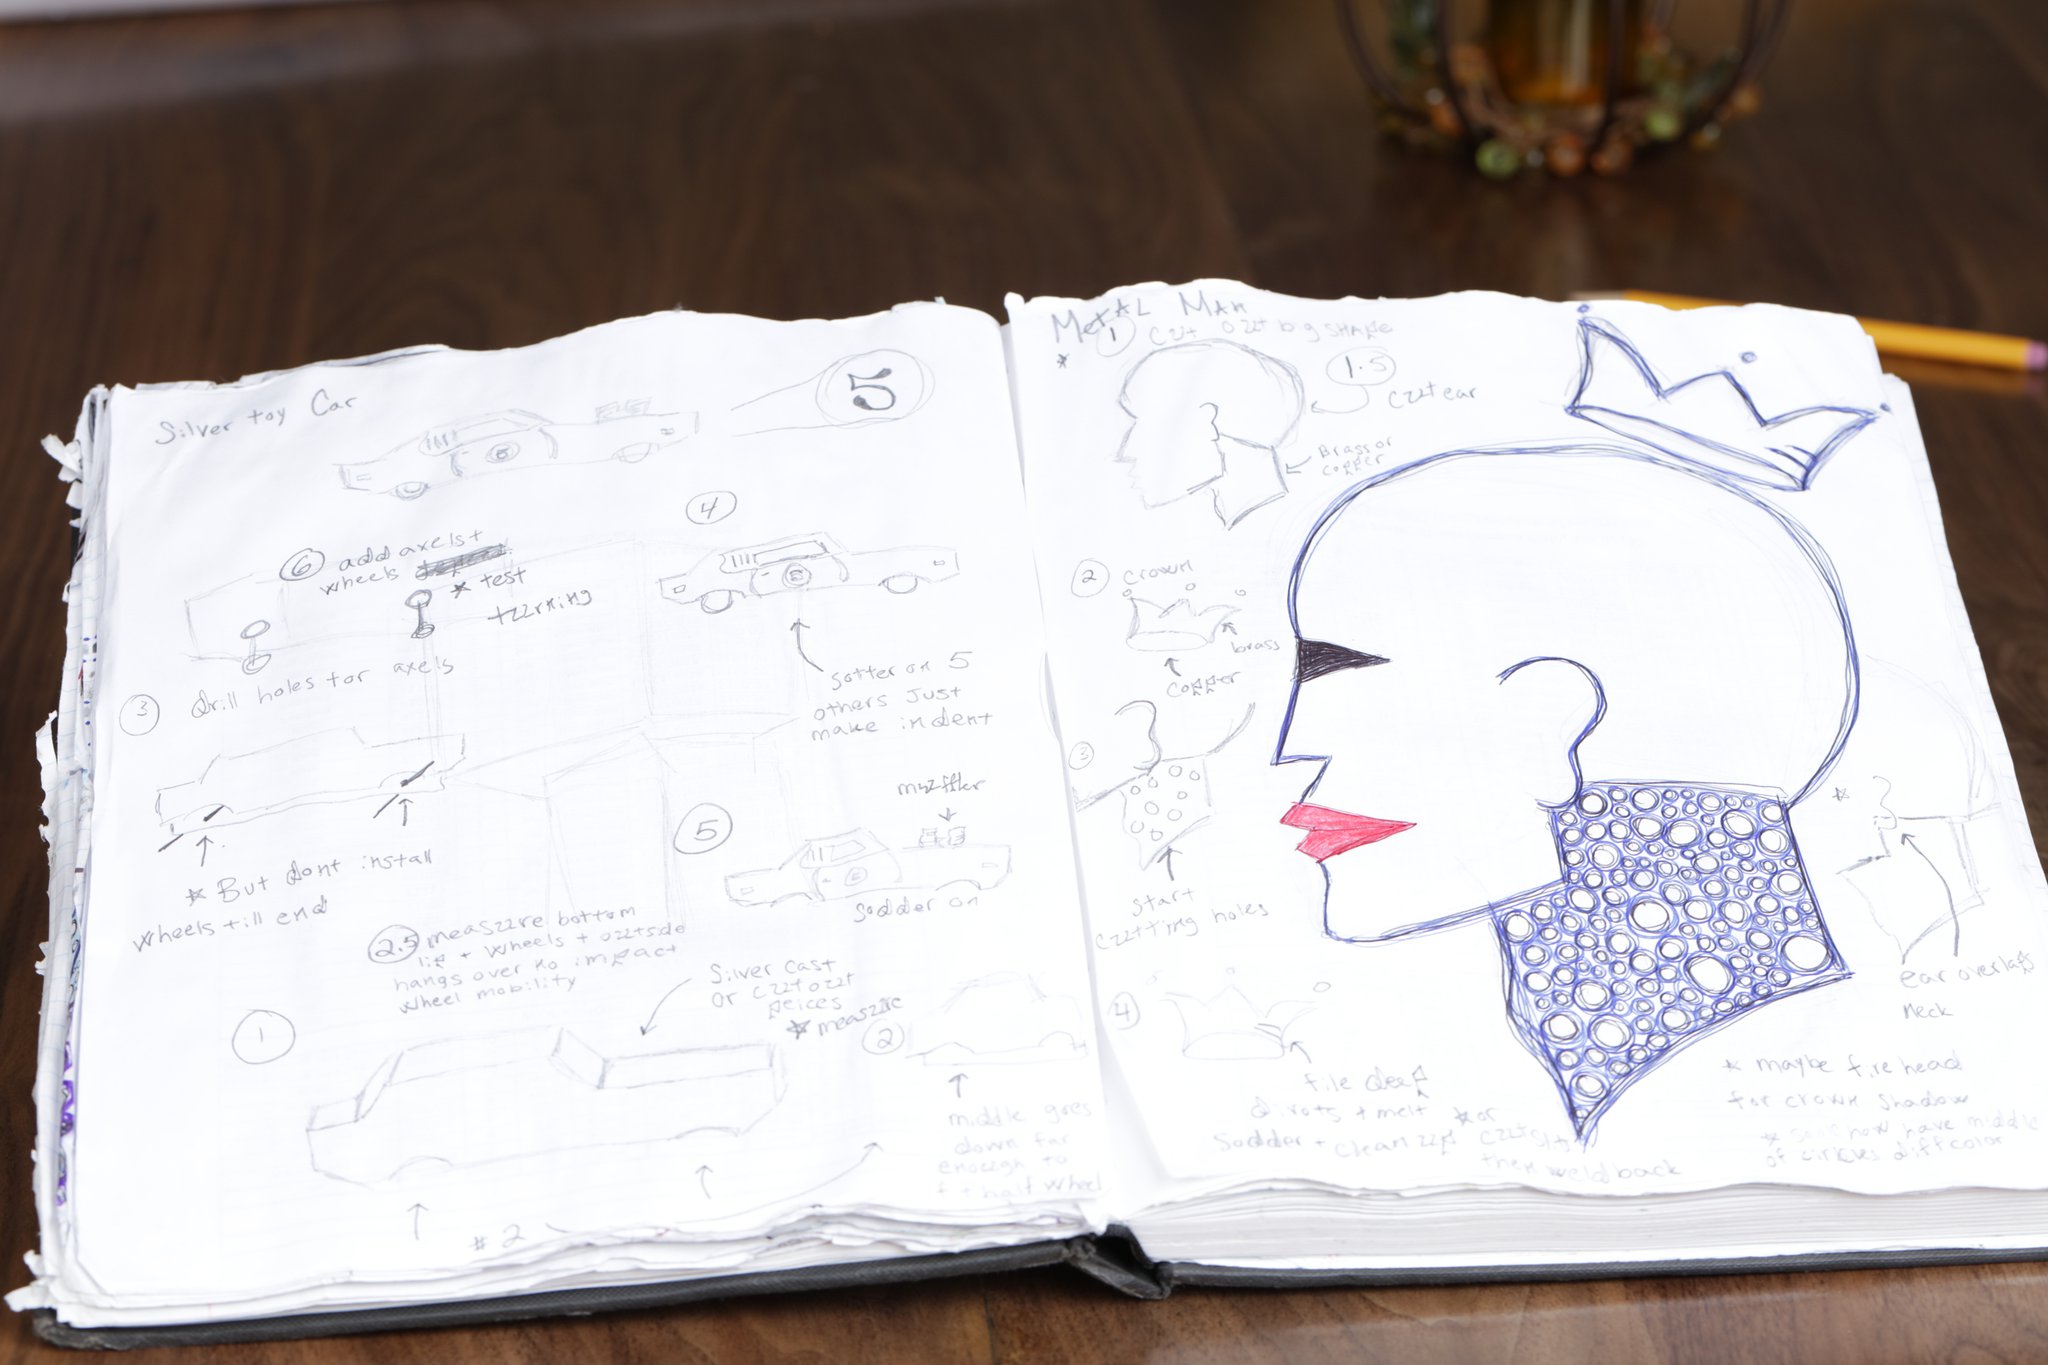 Silver toy Car
5
4
6 add axels +
wheels
* test
turning
sotter on 5
others just
make indent
3 drill holes for axels
* But dont install
wheels till end
5
muffler
Sodder on
2.5 measure bottom
lip + wheels + outside
hangs over no impact
wheel mobility
1
Silver cast
or cut out
peices
* measure
2
middle goes
down far
enough to
fit half wheel
# 2
Metal Man
* 1 Cut out big shape
1.5
Cut ear
Brass or
copper
2 crown
brass
copper
3
start
cutting holes
ear overlaps
neck
4
file deep
divots + melt
Sodder + clean up
* or
cut slits
then weld back
* maybe fire head
for crown shadow
* somhow have middle
of circles diff color